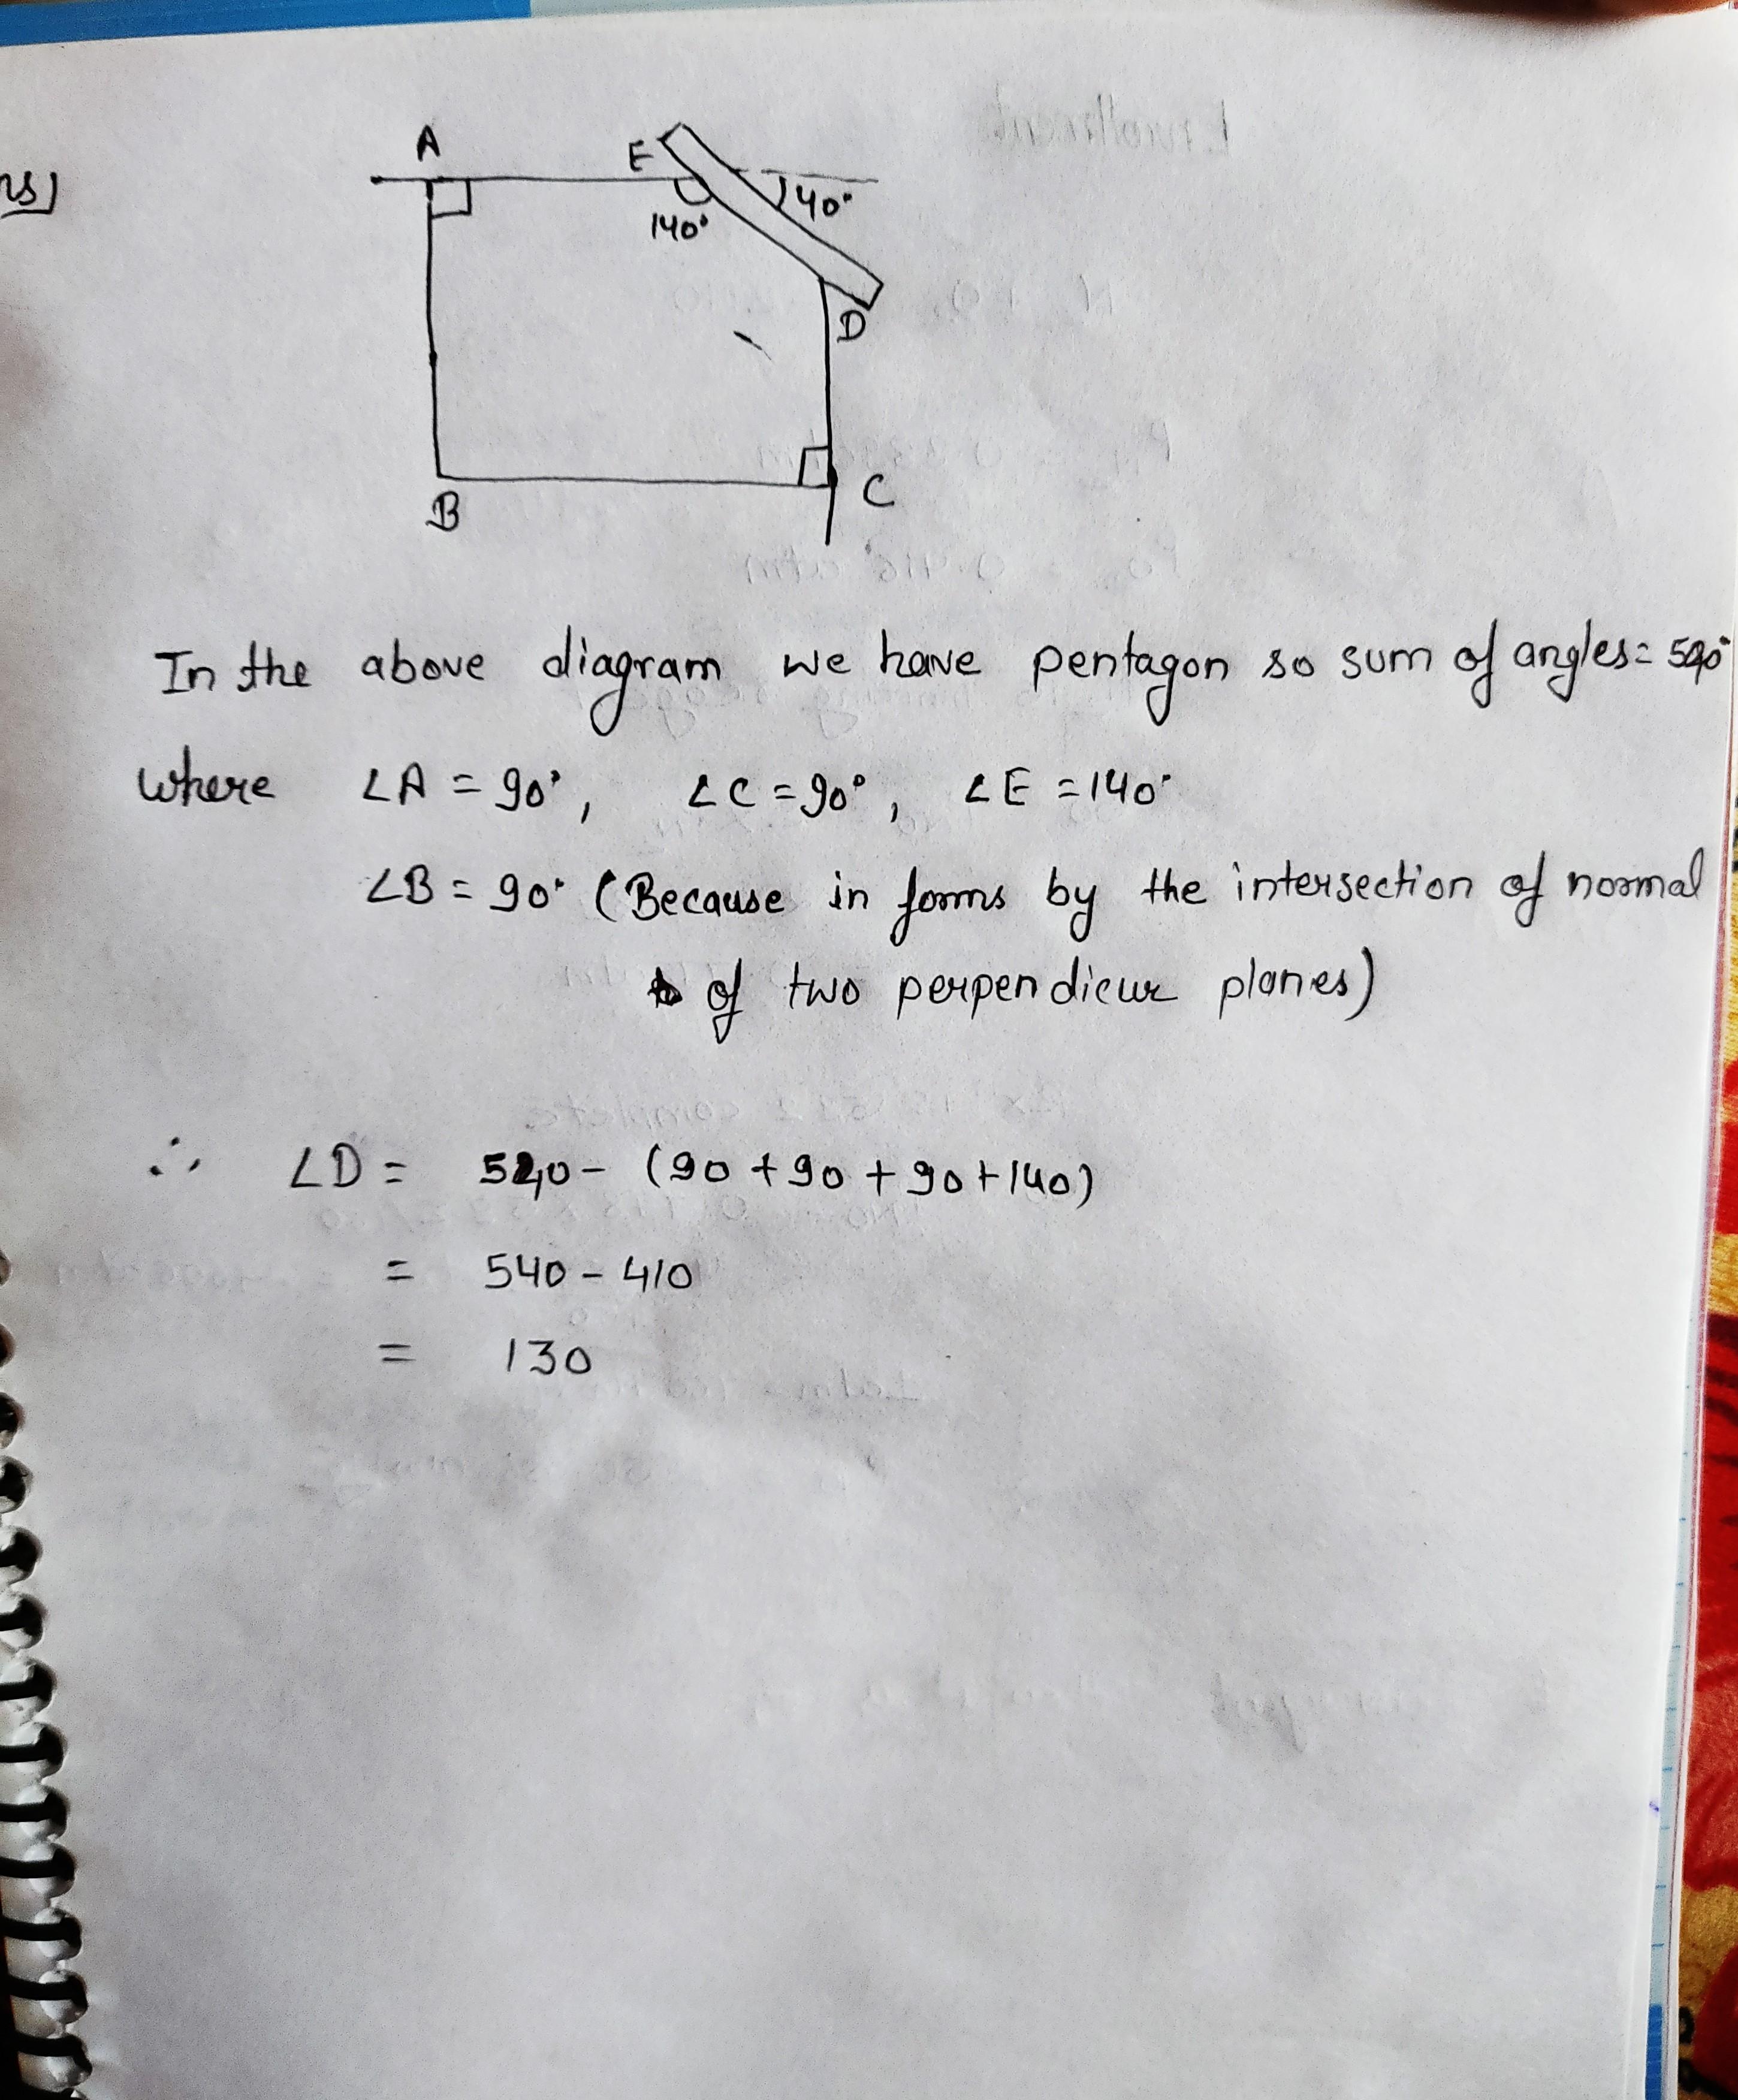 ns)
A
E
140°
140°
D
B
C
In the above diagram we have pentagon so sum of angles = 540°
where ∠A = 90°, ∠C = 90°, ∠E = 140°
∠B = 90° (Because in forms by the intersection of normal
of two perpendicur planes)
∴ ∠D = 540 - (90 + 90 + 90 + 140)
= 540 - 410
= 130